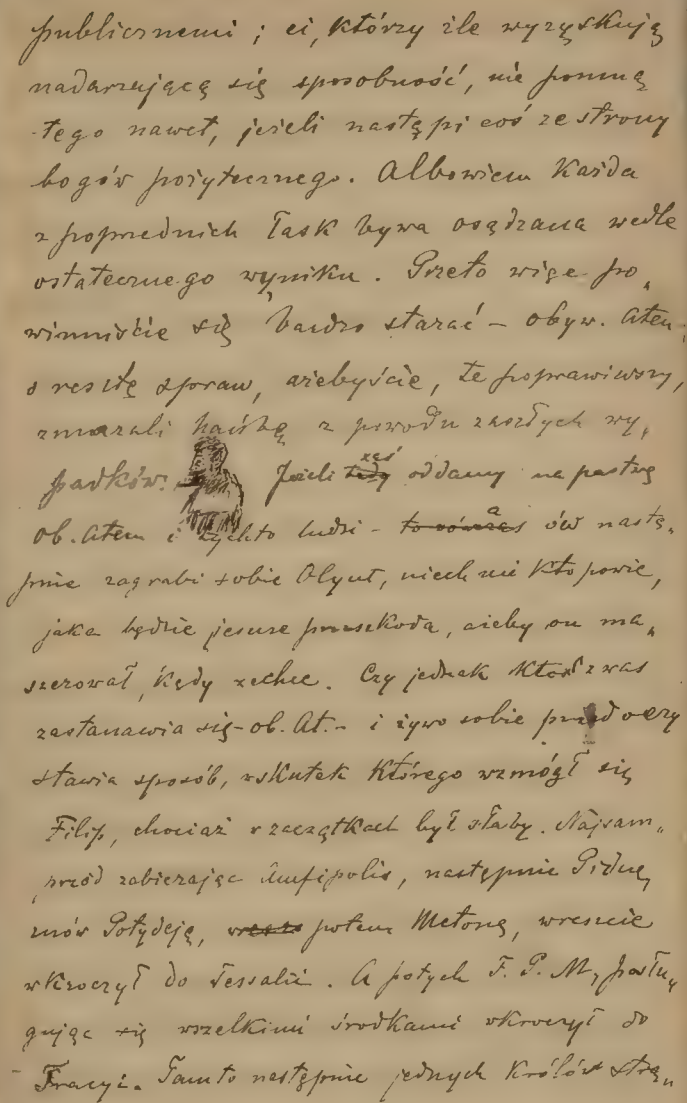 publicznemi ; ci, którzy źle wyzyskują
nadarzającą się sposobność, nie pomną
tego nawet, jeżeli nastąpi coś ze strony
bogów pożytecznego. Albowiem Każda
z poprzednich łask bywa osądzana wedle
ostatecznego wyniku. Przeto więc po„
winniście się bardzo starać – obyw. Aten„
o resztę spraw, ażebyście, te poprawiwszy,
zmazali hańbę z powodu zaszłych wy„
padków. Jeżeli zaś oddamy na pastwę
ob. Aten i tychto ludzi – a ów nastę„
pnie zagrabi sobie Olynt, niech mi kto powie,
jaka będzie jeszcze przeszkoda, ażeby on ma„
szerował, kędy zechce. Czy jednak ktoś z was
zastanawia się – ob. At. – i żywo sobie przed oczy
stawia sposób, wskutek którego wzmógł się
Filip, chociaż w zaczątkach był słaby. Najsam„
przód zabierając Amfipolis, następnie Pidnę,
znów Potydeję, potem Metonę, wreszcie
wkroczył do Tessalii. A potych F. P. M, posłu„
gując się wszelkimi środkami wkroczył do
Tracyi. Tamto następnie jednych Królów strą„